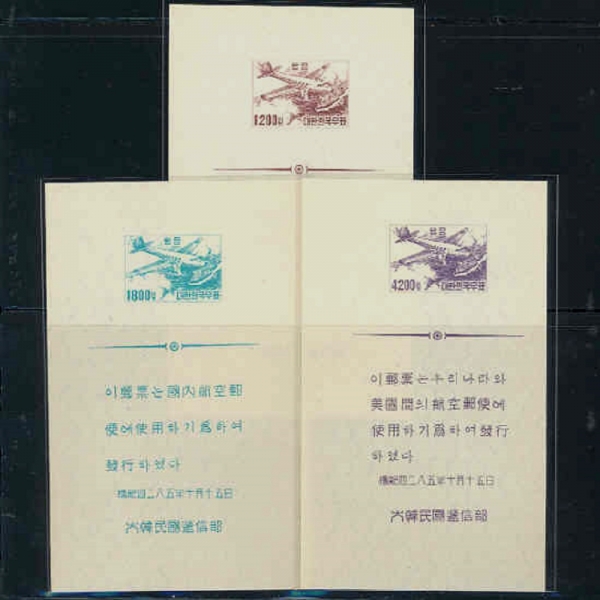 1200원 대한민국우표
1800원 대한민국우표
이郵票는國內航空郵
便에使用하기爲하여
發行하였다
檀紀四二八五年十月十五日
大韓民國遞信部
4200원 대한민국우표
이郵票는우리나라와
美國間의航空郵便에
使用하기爲하여發行
하였다
檀紀四二八五年十月十五日
大韓民國遞信部